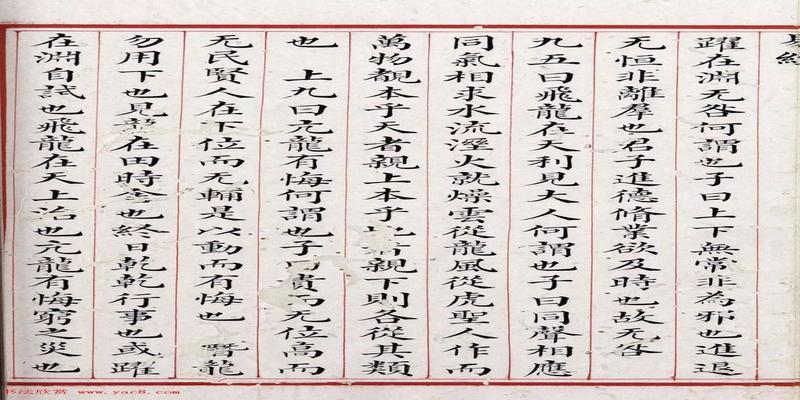 躍在淵无咎何謂也子曰上下無常非為邪也進退
无恒非離羣也君子進德脩業欲及時也故无咎
九五曰飛龍在天利見大人何謂也子曰同聲相應
同氣相求水流溼火就燥雲從龍風從虎聖人作而
萬物覩本乎天者親上本乎地者親下則各從其類
也 上九曰亢龍有悔何謂也子曰貴而无位高而
无民賢人在下位而无輔是以動而有悔也 朁龍
勿用下也見龍在田時舍也終日乾乾行事也或躍
在淵自試也飛龍在天上治也亢龍有悔窮之災也
书法欣赏 www.yac8.com